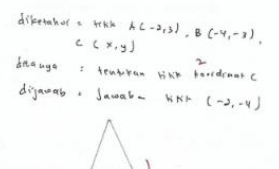 diketahui = titik A (-2,3), B (-4,-3),
C (x,y)
ditanya : tentukan titik koordinat C
dijawab : Jawab = titik (-2,-4)